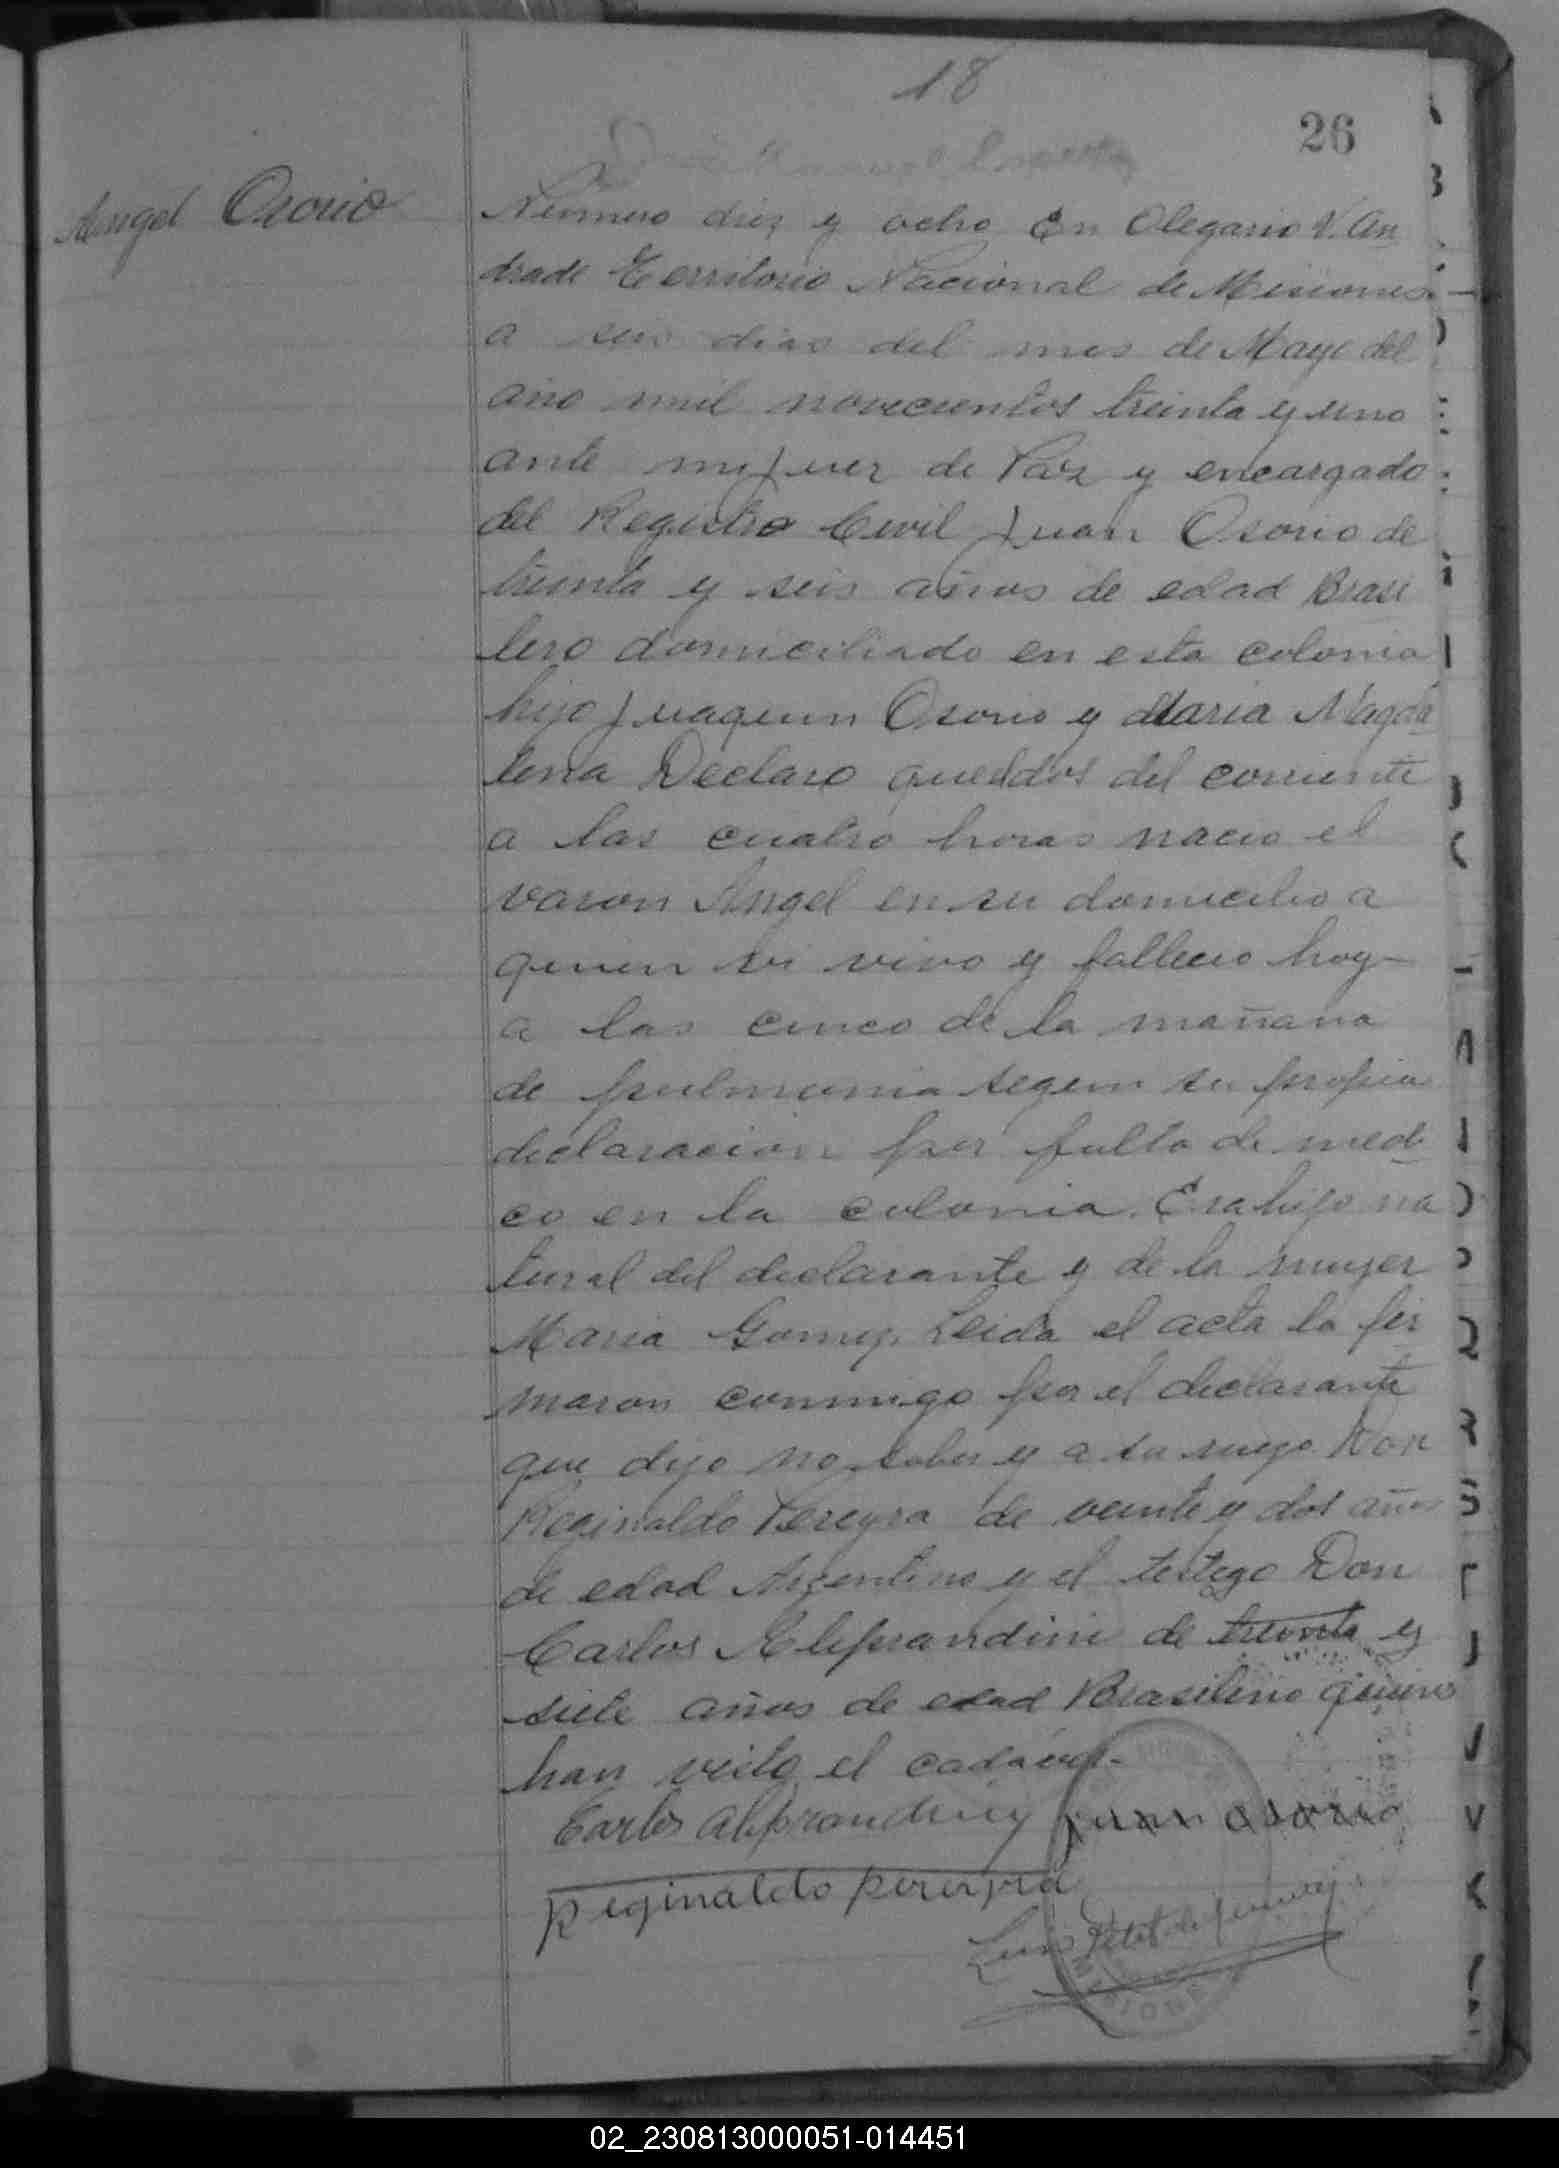 18
26
Angel Osorio
Número diez y ocho En Olegario V. An
drade Territorio Nacional de Misiones
a seis dias del mes de Mayo del
año mil novecientos treinta y uno
ante mi Juez de Paz y encargado
del Registro Civil Juan Osorio de
treinta y seis años de edad Brasi
lero domiciliado en esta colonia
hijo Juaquin Osorio y Maria Magda
lena Declaro que el dos del corriente
a las cuatro horas nacio el
varon Angel en su domicilio a
quien vi vivo y fallecio hoy
a las cinco de la mañana
de pulmunia segun su propia
declaracion por falta de medi
co en la colonia. Era hijo na
tural del declarante y de la mujer
Maria Gomez. Leida el acta la fir
maron conmigo por el declarante
que dijo no saber y a su ruego Don
Reginaldo Pereyra de veinte y dos años
de edad Argentino y el testigo Don
Carlos Aliprandini de treinta y
siete años de edad Brasilero quienes
han visto el cadáver.
Carlos Aliprandiny Juan Osorio
Reginaldo pereyra
Luis Petit de
MISIONES
02_230813000051-014451